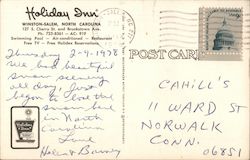 Holiday Inn
WINSTON-SALEM, NORTH CAROLINA
127 S. Cherry St. and Brookstown Ave.
Ph. 723-8361 — AC: 919
Swimming Pool — Air-conditioned — Restaurant
Free TV — Free Holiday Reservations
POST CARD
Thursday 2-9-1978
We had beautiful
snow scenery
all day. Just
began to
in North
Carolina.
Love
Helen & Barney
CAHILL'S
11 WARD ST
NORWALK
CONN.
06851
Holiday Inn